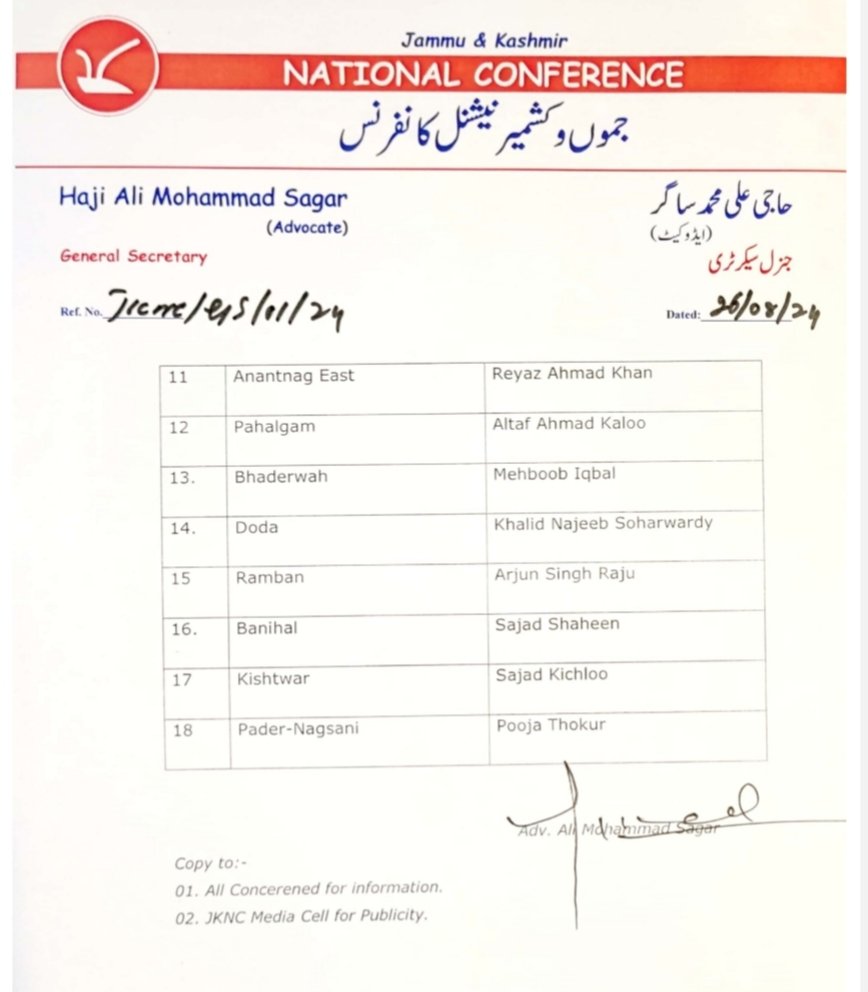 Jammu & Kashmir
NATIONAL CONFERENCE
جموں و کشمیر نیشنل کانفرنس
Haji Ali Mohammad Sagar
(Advocate)
General Secretary
حاجی علی محمد ساگر
(ایڈوکیٹ)
جنرل سیکرٹری
Ref. No.
Dated: 26/08/24
11 Anantnag East Reyaz Ahmad Khan
12 Pahalgam Altaf Ahmad Kaloo
13. Bhaderwah Mehboob Iqbal
14. Doda Khalid Najeeb Soharwardy
15 Ramban Arjun Singh Raju
16. Banihal Sajad Shaheen
17 Kishtwar Sajad Kichloo
18 Pader-Nagsani Pooja Thokur
Adv. Ali Mohammad Sagar
Copy to:-
01. All Concerened for information.
02. JKNC Media Cell for Publicity.